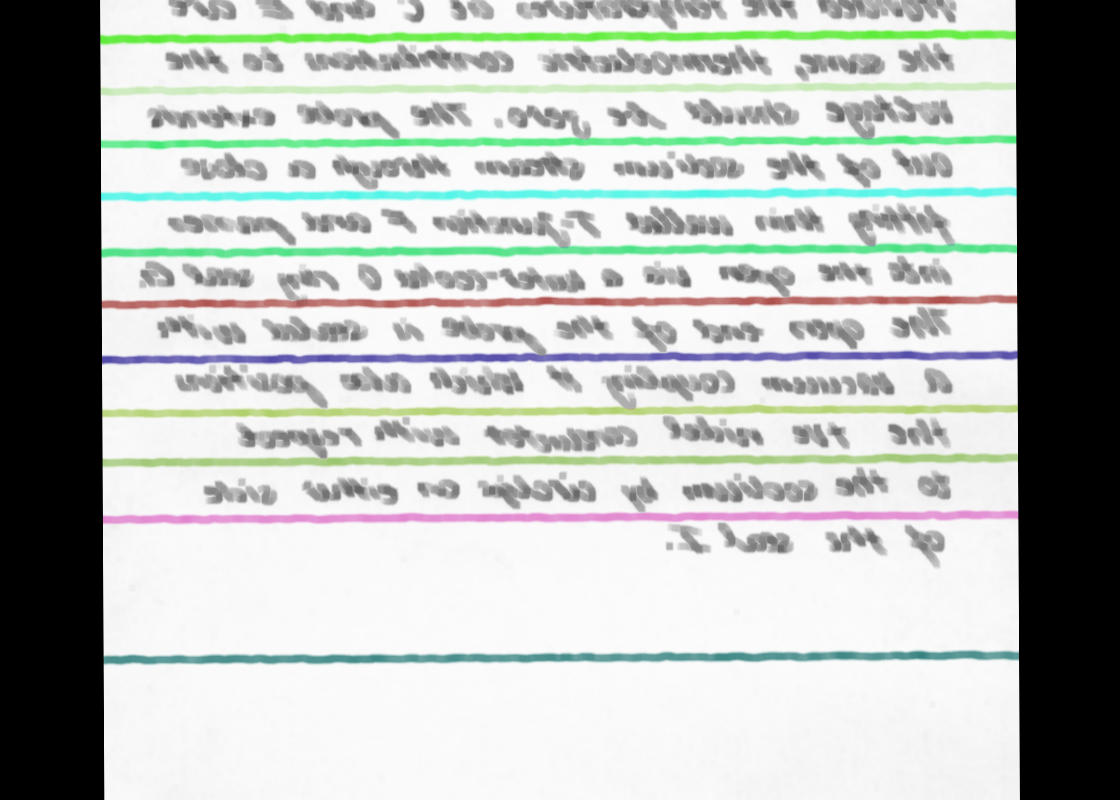 the temperatures at C and E are
the same, thermoelectric contributions to the
voltage should be zero. The probe extends
out of the sodium stream through a close
fitting thin walled T-junction F and passes
into the open via a water-cooled O ring seal
The open end of the probe is sealed with
a vacuum coupling which also positions
the nickel conductor with respect
to the sodium by circlips on either side
of the seal I.